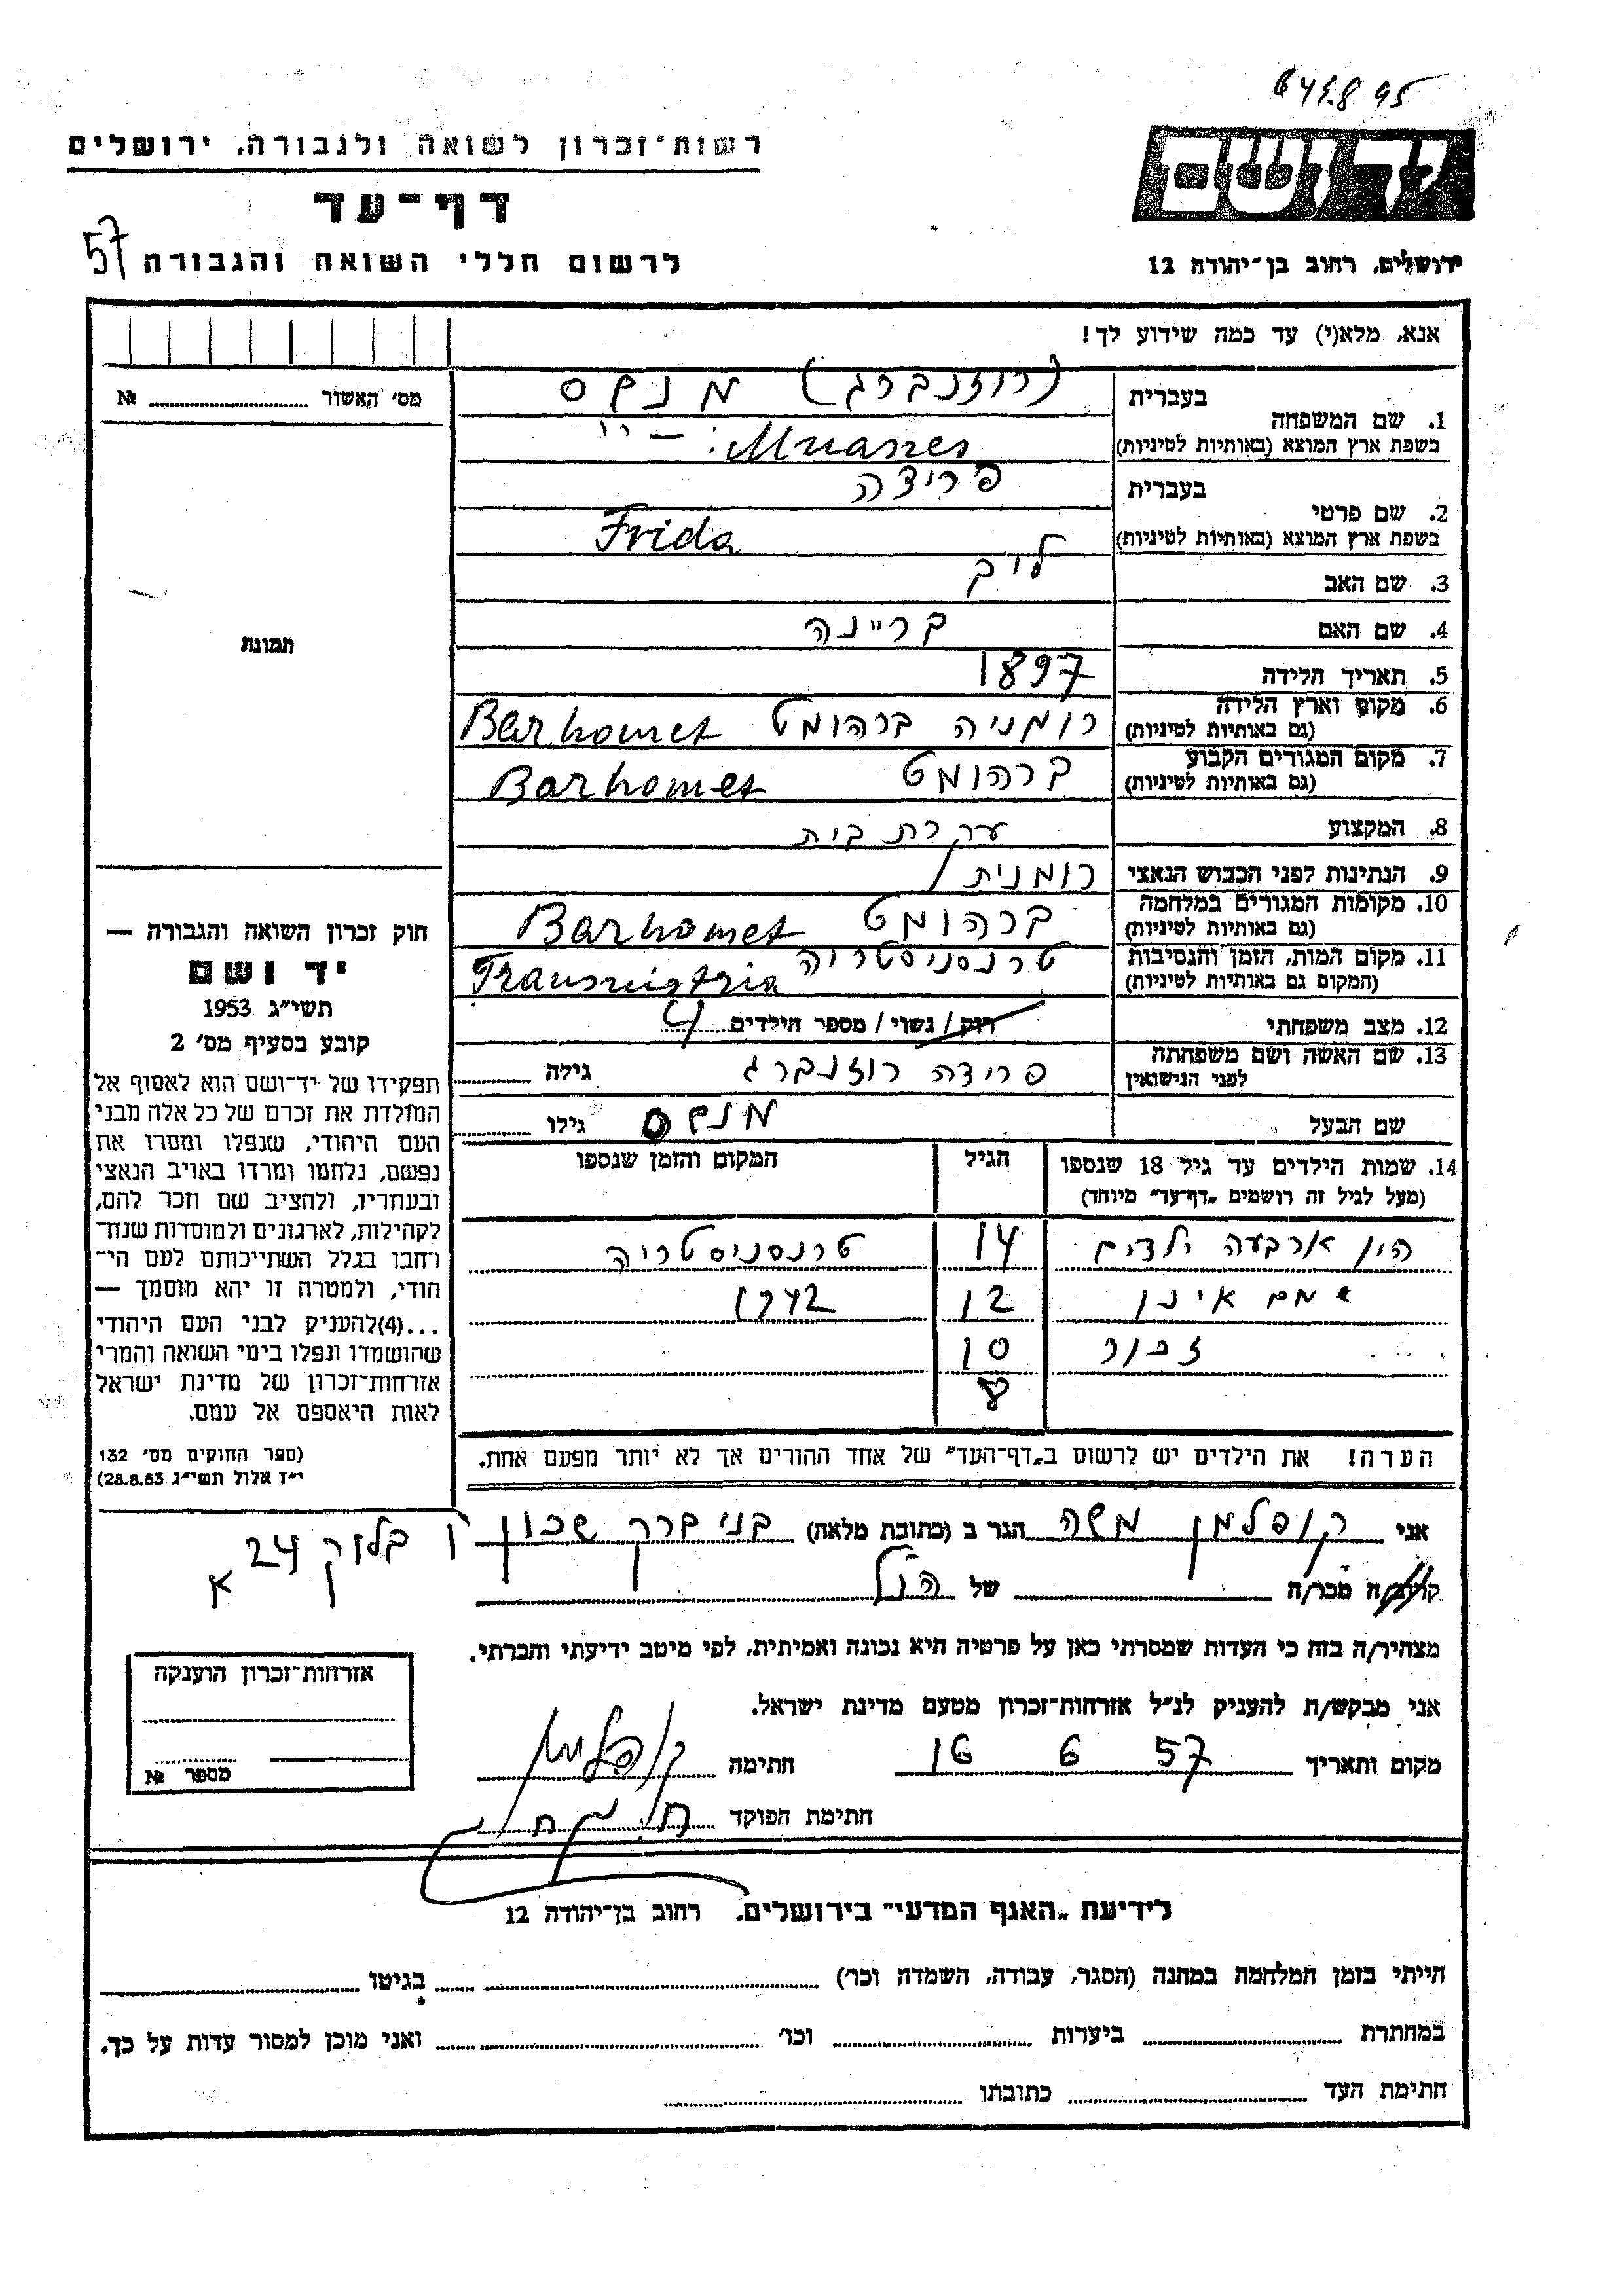 רשות־זכרון לשואה ולגבורה, ירושלים
יד ושם
דף־עד
לרשום חללי השואה והגבורה 57
ירושלים, רחוב בן־יהודה 12
אנא, מלא(י) עד כמה שידוע לך!
מס׳ האשור № ........
תמונה
חוק זכרון השואה והגבורה —
יד ושם
תשי״ג 1953
קובע בסעיף מס׳ 2
תפקידו של יד־ושם הוא לאסוף אל
המולדת את זכרם של כל אלה מבני
העם היהודי, שנפלו ומסרו את
נפשם, נלחמו ומרדו באויב הנאצי
ובעוזריו, ולהציב שם וזכר להם,
לקהילות, לארגונים ולמוסדות שנח־
רבו בגלל השתייכותם לעם הי־
הודי, ולמטרה זו יהא מוסמך —
...(4)להעניק לבני העם היהודי
שהושמדו ונפלו בימי השואה והמרי
אזרחות־זכרון של מדינת ישראל
לאות היאספם אל עמם.
(ספר החוקים מס׳ 132
י״ז אלול תשי״ג 28.8.53)
1. שם המשפחה
בעברית (רוזנברג) מנסס
בשפת ארץ המוצא (באותיות לטיניות)
2. שם פרטי
בעברית פרידה
בשפת ארץ המוצא (באותיות לטיניות) Frida
3. שם האב לייב
4. שם האם בריינה
5. תאריך הלידה 1897
6. מקום וארץ הלידה
(גם באותיות לטיניות) רומניה ברהומט Barhomet
7. מקום המגורים הקבוע
(גם באותיות לטיניות) ברהומט Barhomet
8. המקצוע עקרת בית
9. הנתינות לפני הכבוש הנאצי רומנית
10. מקומות המגורים במלחמה
(גם באותיות לטיניות) ברהומט Barhomet
11. מקום המות, הזמן והנסיבות
(המקום גם באותיות לטיניות) טרנסניסטריה Transnistria
12. מצב משפחתי רוק / נשוי / מספר הילדים 4
13. שם האשה ושם משפחתה
לפני הנישואין פרידה רוזנברג גילה ........
שם הבעל גילו ........
14. שמות הילדים עד גיל 18 שנספו הגיל המקום והזמן שנספו
(מעל לגיל זה רושמים „דף־עד״ מיוחד)
היו ארבעה ילדים 14 טרנסניסטריה
שמם אינו 12 1942
זכור 10
8
הערה! את הילדים יש לרשום ב„דף־העד״ של אחד ההורים אך לא יותר מפעם אחת.
אני קופלמן משה הגר ב (כתובת מלאה) בני ברק שכון ו בלוק 24 א
קרוב/ה מכר/ה של הנ״ל
מצהיר/ה בזה כי העדות שמסרתי כאן על פרטיה היא נכונה ואמיתית, לפי מיטב ידיעתי והכרתי.
אני מבקש/ת להעניק לנ״ל אזרחות־זכרון מטעם מדינת ישראל.
מקום ותאריך 16 6 57 חתימה קופלמן
חתימת הפוקד
אזרחות־זכרון הוענקה
מספר №
לידיעת „האגף המדעי״ בירושלים, רחוב בן־יהודה 12
הייתי בזמן המלחמה במחנה (הסגר, עבודה, השמדה וכו׳) ........ בגיטו ........
במחתרת ........ ביערות ........ וכו׳ ........ ואני מוכן למסור עדות על כך.
חתימת העד ........ כתובתו ........